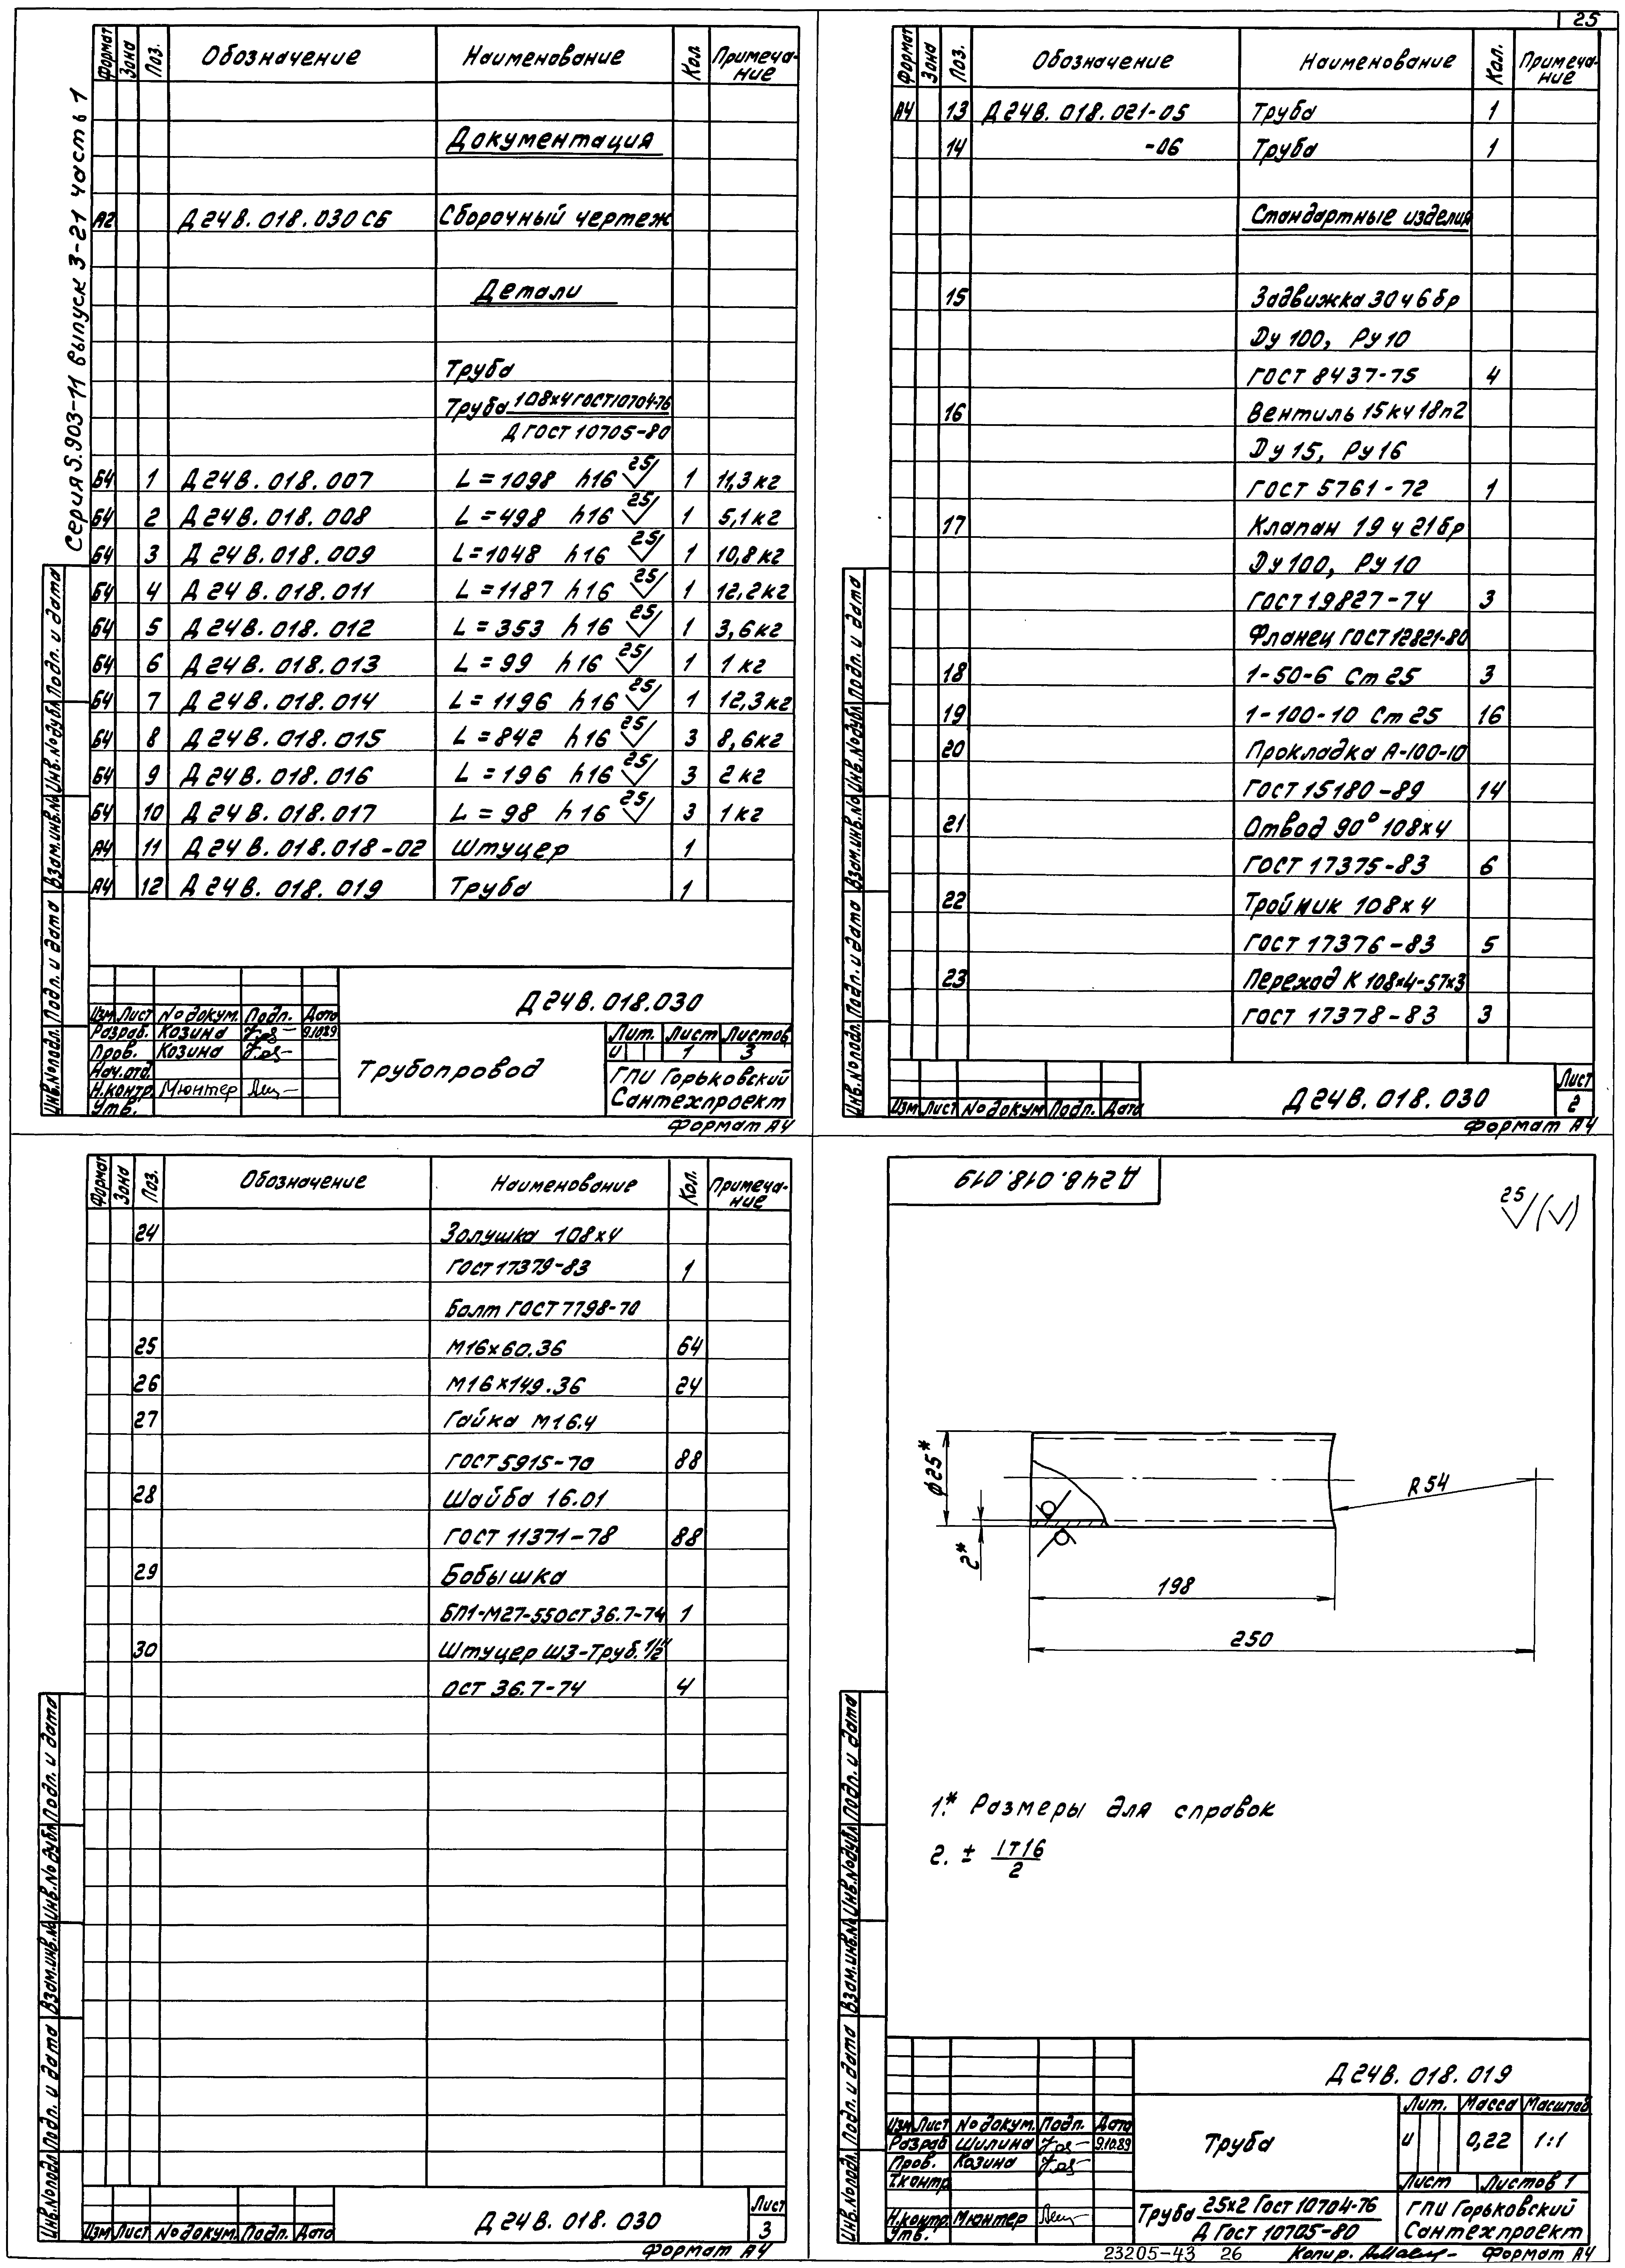 25
Серия 5.903-11 выпуск 3-21 часть 1
Формат Зона Поз. Обозначение Наименование Кол. Примеча-
ние
Документация
А2 Д24В.018.030СБ Сборочный чертеж
Детали
Труба
Труба 108х4 ГОСТ10704-76
Д ГОСТ 10705-80
Б4 1 Д24В.018.007 L=1098 h16 25 1 11,3кг
Б4 2 Д24В.018.008 L=498 h16 25 1 5,1кг
Б4 3 Д24В.018.009 L=1048 h16 25 1 10,8кг
Б4 4 Д24В.018.011 L=1187 h16 25 1 12,2кг
Б4 5 Д24В.018.012 L=353 h16 25 1 3,6кг
Б4 6 Д24В.018.013 L=99 h16 25 1 1кг
Б4 7 Д24В.018.014 L=1196 h16 25 1 12,3кг
Б4 8 Д24В.018.015 L=842 h16 25 3 8,6кг
Б4 9 Д24В.018.016 L=196 h16 25 3 2кг
Б4 10 Д24В.018.017 L=98 h16 25 3 1кг
А4 11 Д24В.018.018-02 Штуцер 1
А4 12 Д24В.018.019 Труба 1
Инв.№подл. Подп. и дата Взам.инв.№ Инв.№дубл. Подп. и дата
Д24В.018.030
Изм Лист №докум. Подп. Дата
Разраб. Козина 9.10.89
Пров. Козина
Нач.отд.
Н.контр. Мюнтер
Утв.
Трубопровод
Лит. Лист Листов
И 1 3
ГПИ Горьковский
Сантехпроект
Формат А4
Формат Зона Поз. Обозначение Наименование Кол. Примеча-
ние
А4 13 Д24В.018.021-05 Труба 1
14 -06 Труба 1
Стандартные изделия
15 Задвижка 30ч6бр
Ду 100, Ру 10
ГОСТ 8437-75 4
16 Вентиль 15кч18п2
Ду 15, Ру 16
ГОСТ 5761-72 1
17 Клапан 19ч21бр
Ду 100, Ру 10
ГОСТ 19827-74 3
Фланец ГОСТ12821-80
18 1-50-6 Ст25 3
19 1-100-10 Ст25 16
20 Прокладка А-100-10
ГОСТ 15180-89 14
21 Отвод 90° 108х4
ГОСТ 17375-83 6
22 Тройник 108х4
ГОСТ 17376-83 5
23 Переход К 108х4-57х3
ГОСТ 17378-83 3
Инв.№подл. Подп. и дата Взам.инв.№ Инв.№дубл. Подп. и дата
Изм Лист №докум. Подп. Дата
Д24В.018.030
Лист
2
Формат А4
Формат Зона Поз. Обозначение Наименование Кол. Примеча-
ние
24 Золушка 108х4
ГОСТ 17379-83 1
Болт ГОСТ 7798-70
25 М16х60.36 64
26 М16х149.36 24
27 Гайка М16.4
ГОСТ 5915-70 88
28 Шайба 16.01
ГОСТ 11371-78 88
29 Бобышка
БП1-М27-55ОСТ36.7-74 1
30 Штуцер Ш3-Труб.1/2"
ОСТ 36.7-74 4
Инв.№подл. Подп. и дата Взам.инв.№ Инв.№дубл. Подп. и дата
Изм Лист №докум. Подп. Дата
Д24В.018.030
Лист
3
Формат А4
Д24В.018.019
25
ф25*
2*
R54
198
250
1.* Размеры для справок
2. ± IT16
2
Инв.№подл. Подп. и дата Взам.инв.№ Инв.№дубл. Подп. и дата
Д24В.018.019
Изм Лист №докум. Подп. Дата
Разраб Шилина 9.10.89
Пров. Козина
Т.контр
Н.контр. Мюнтер
Утв.
Труба
Лит. Масса Масштаб
И 0,22 1:1
Лист Листов 1
Труба 25х2 ГОСТ 10704-76
Д ГОСТ 10705-80
ГПИ Горьковский
Сантехпроект
23205-43 26 Копир. Формат А4